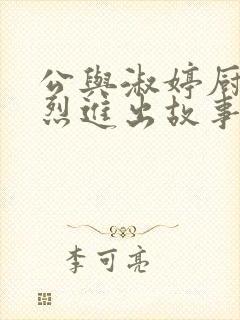 公與淑婷厨
烈進出故事
李可亮